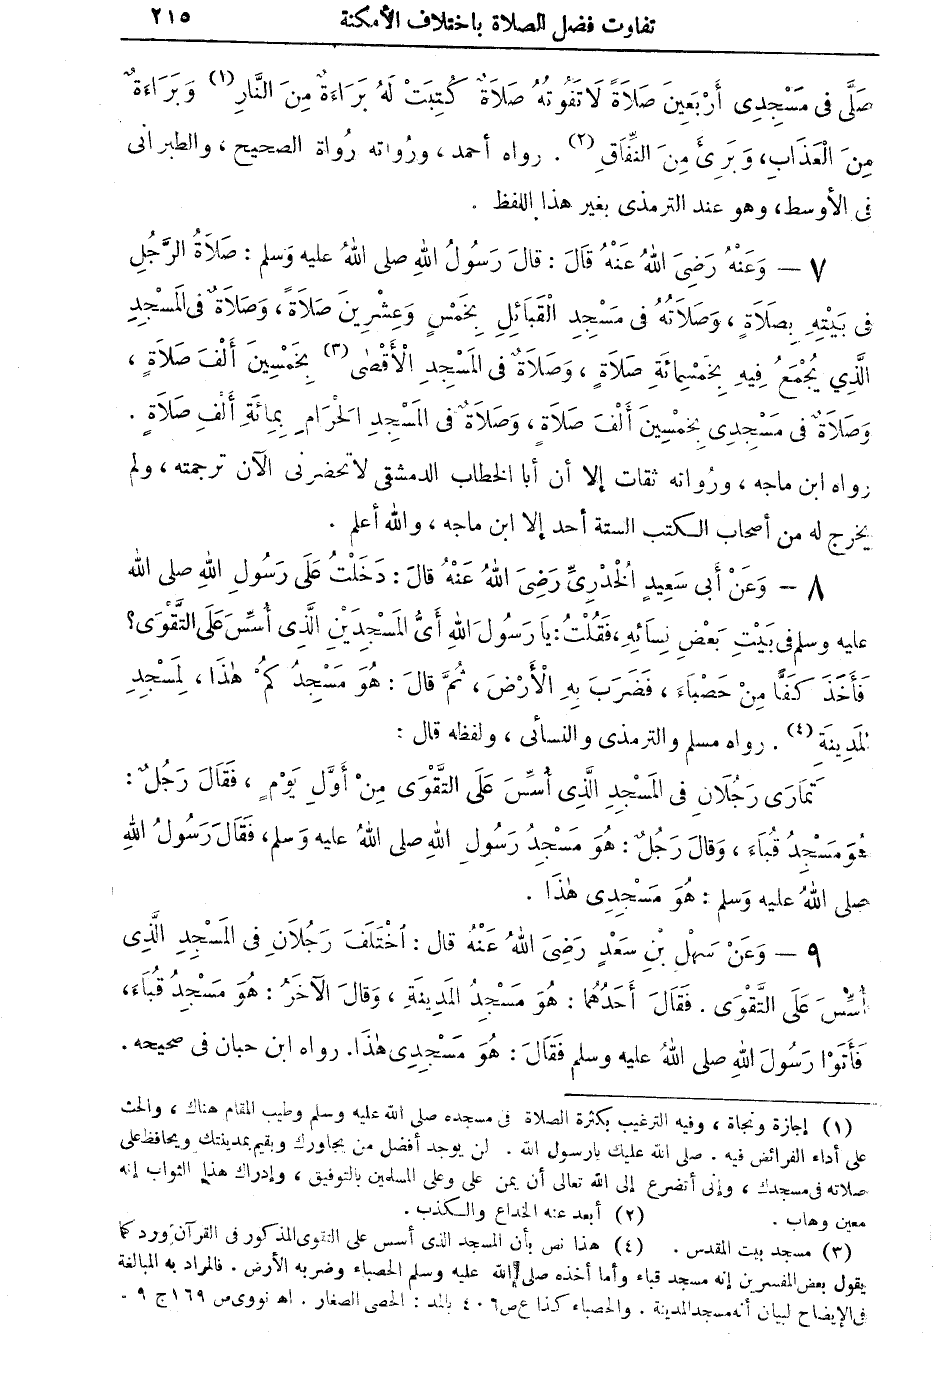 تفاوت فضل الصلاة باختلاف الأمكنة ٢١٥
صَلَّى فى مَسْجِدِى أَرْبَعِينَ صَلَاةً لَا تَفُوتُهُ صَلَاةٌ كُتِبَتْ لَهُ بَرَاءَةٌ مِنَ النَّارِ (١) وَبَرَاءَةٌ
مِنَ الْعَذَابِ، وَبَرِئَ مِنَ النِّفَاقِ (٢) . رواه أحمد ، ورُواته رُواة الصحيح ، والطبرانى
فى الأوسط، وهو عند الترمذى بغير هذا اللفظ .
٧ — وَعَنْهُ رَضِىَ اللهُ عَنْهُ قَالَ : قالَ رَسُولُ اللهِ صلى اللهُ عليه وَسلم : صَلَاةُ الرَّجُلِ
فى بَيْتِهِ بِصَلَاةٍ ، وَصَلَاتُهُ فى مَسْجِدِ الْقَبَائِلِ بِخَمْسٍ وَعِشْرِينَ صَلَاةً ، وَصَلَاةٌ فى المَسْجِدِ
الَّذِي يُجْمَعُ فِيهِ بِخَمْسِمِائَةِ صَلَاةٍ ، وَصَلَاةٌ فى المَسْجِدِ الْأَقْصٰى (٣) بِخَمْسِينَ أَلْفَ صَلَاةٍ ،
وَصَلَاةٌ فى مَسْجِدِى بِخَمْسِينَ أَلْفَ صَلَاةٍ ، وَصَلَاةٌ فى المَسْجِدِ الحَرَامِ بِمِائَةِ أَلْفِ صَلَاةٍ .
رواه ابن ماجه ، ورُواته ثقات إلا أن أبا الخطاب الدمشقى لا تحضرنى الآن ترجمته ، ولم
يخرج له من أصحاب الكتب الستة أحد إلا ابن ماجه ، والله أعلم .
٨ — وَعَنْ أَبى سَعِيدٍ الْخُدْرِىِّ رَضِىَ اللهُ عَنْهُ قالَ : دَخَلْتُ عَلَى رَسُولِ اللهِ صلى الله
عليه وسلم فى بَيْتِ بَعْضِ نِسَائِهِ، فَقُلْتُ: يَا رَسُولَ اللهِ أَىُّ المَسْجِدَيْنِ الَّذِى أُسِّسَ عَلَى التَّقْوَى؟
فَأَخَذَ كَفًّا مِنْ حَصْبَاءَ ، فَضَرَبَ بِهِ الْأَرْضَ ، ثُمَّ قالَ : هُوَ مَسْجِدُ كُمْ هٰذَا ، لِمَسْجِدِ
المَدِينَةِ (٤) . رواه مسلم والترمذى والنسائى ، ولفظه قال :
تَمَارَى رَجُلَانِ فى المَسْجِدِ الَّذِى أُسِّسَ عَلَى التَّقْوَى مِنْ أَوَّلِ يَوْمٍ ، فَقَالَ رَجُلٌ :
هُوَ مَسْجِدُ قُبَاءَ ، وَقالَ رَجُلٌ : هُوَ مَسْجِدُ رَسُولِ اللهِ صلى اللهُ عليه وَسلم، فَقَالَ رَسُولُ اللهِ
صلى اللهُ عليه وَسلم : هُوَ مَسْجِدِى هٰذَا .
٩ — وَعَنْ سَهْلِ بْنِ سَعْدٍ رَضِىَ اللهُ عَنْهُ قال : اخْتَلَفَ رَجُلَانِ فى المَسْجِدِ الَّذِى
أُسِّسَ عَلَى التَّقْوَى . فَقَالَ أَحَدُهُمَا : هُوَ مَسْجِدُ المَدِينَةِ ، وَقالَ الْآخَرُ : هُوَ مَسْجِدُ قُبَاءَ،
فَأَتَوْا رَسُولَ اللهِ صلى اللهُ عليه وسلم فَقَالَ : هُوَ مَسْجِدِى هٰذَا. رواه ابن حبان فى صحيحه .
(١) إجازة ونجاة ، وفيه الترغيب بكثرة الصلاة فى مسجده صلى الله عليه وسلم وطيب المقام هناك ، والحث
على أداء الفرائض فيه . صلى الله عليك يارسول الله . لن يوجد أفضل من يجاورك ويقيم بمدينتك ويحافظ على
صلاته فى مسجدك ، وإنى أتضرع إلى الله تعالى أن يمن على وعلى المسلمين بالتوفيق ، وإدراك هذا الثواب إنه
معين وهاب . (٢) أبعد عنه الخداع والكذب .
(٣) مسجد بيت المقدس . (٤) هذا نص بأن المسجد الذى أسس على التقوى المذكور فى القرآن ورد كما
يقول بعض المفسرين إنه مسجد قباء وأما أخذه صلى الله عليه وسلم الحصباء وضربه الأرض . فالمراد به المبالغة
فى الإيضاح لبيان أنه مسجد المدينة . والحصباء كذا ع ص ٤٠٦ بالمد : الحصى الصغار . اه نووى ص ١٦٩ ج ٩ .